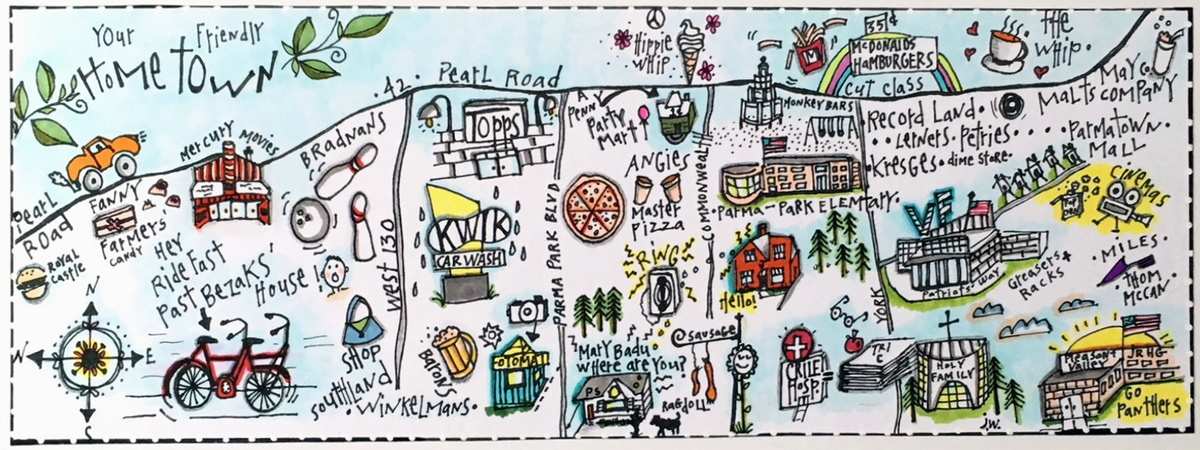 Your Friendly
HOMETOWN
Pearl Road
FANNY
FARMERS'
CANDY
ROYAL
CASTLE
N
W
E
S
MERCURY MOVIES
HEY
RIDE FAST
PAST BEZAKS'
HOUSE!
BRADNANS
.42. PEARL ROAD
WEST 130
SHOP
SOUTHLAND
WINKELMANS.
TOPPS
KWIK
CAR WASH
BATONS
FOTOMAT
PARMA PARK BLVD
HIPPIE
WHIP.
A
PENNY
PARTY
MART
ANGIES
MASTER
PIZZA
RWG
MARY BADU
WHERE ARE YOU?
P.S.
RAGDOLL!
@SAUSAGE
COMMONWEALTH
MONKEY BARS
PARMA-PARK ELEMTARY.
Hello!
CRILE
HOSP
M
35¢
McDONAIDS
HAMBURGERS
CUT CLASS
THE
WHIP.
RECORD LAND.
LERNERS. PETRIES....
KRESGES. DIME STORE.
MAY CO.
MALTS COMPANY
PARMATOWN.
MALL
CINEMAS
POP
VF
PATRIOTS' WAY
GREASERS +
RACKS
MILES.
THOM
McCAN
YORK
TRI
HOLY
FAMILY
J.W.
PLEASANT
VALLEY
JRHG
GO
PANTHERS